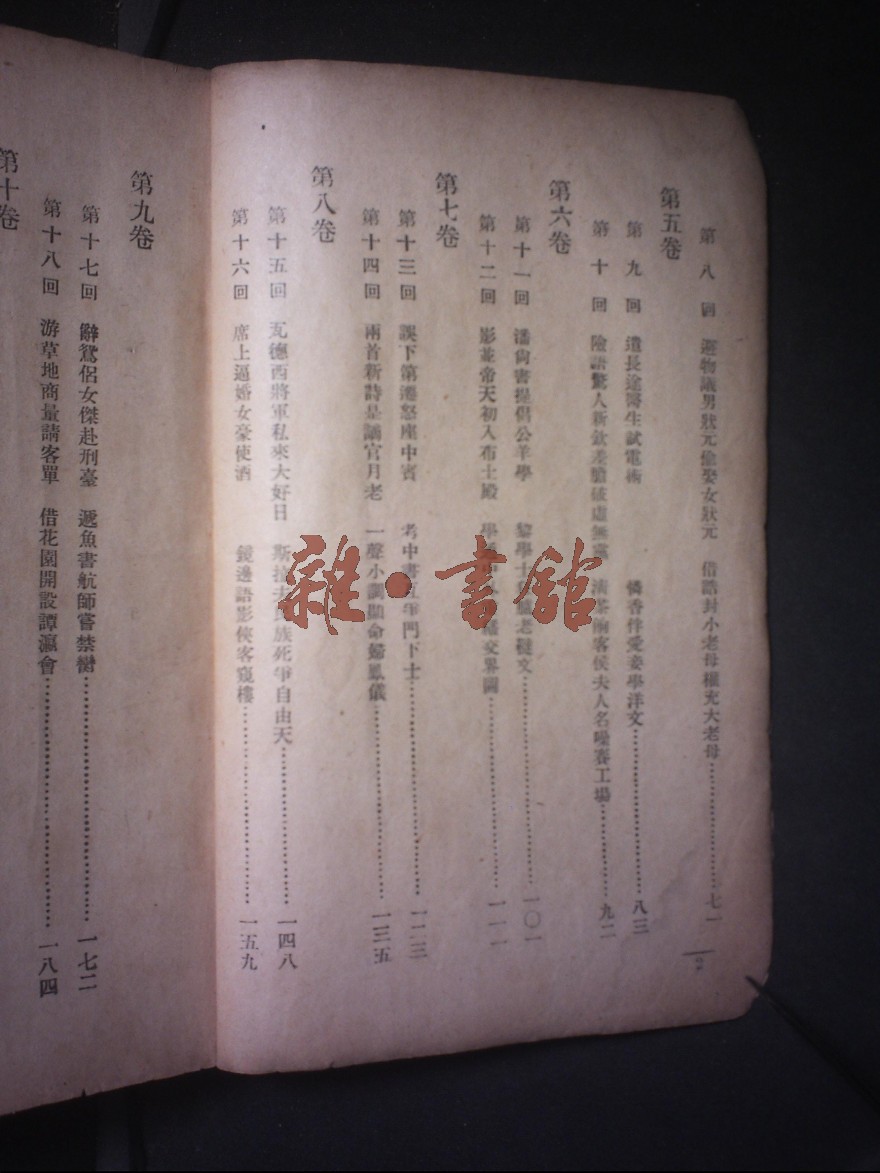 第八回 避物議男狀元偷娶女狀元 借誥封小老母權充大老母……七一
第五卷
第九回 遣長途醫生試電術 憐香伴愛妾學洋文……八三
第十回 險語驚人新欽差膽破虛無黨 清茶侑客侯夫人名噪賽工場……九二
第六卷
第十一回 潘尚書提倡公羊學 黎學士 老韃文……一〇一
第十二回 影並帝天初入布士殿 學 交界圖……一一一
第七卷
第十三回 誤下第遷怒座中賓 考中書互爭門下士……一二三
第十四回 兩首新詩是謫官月老 一聲小調顯命婦風儀……一三五
第八卷
第十五回 瓦德西將軍私來大好日 斯拉夫民族死爭自由天……一四八
第十六回 席上逼婚女豪使酒 鏡邊語影俠客窺樓……一五九
第九卷
第十七回 辭鴛侶女傑赴刑臺 遞魚書航師嘗禁臠……一七二
第十八回 游草地商量請客單 借花園開設譚瀛會……一八四
第十卷
雜·書館